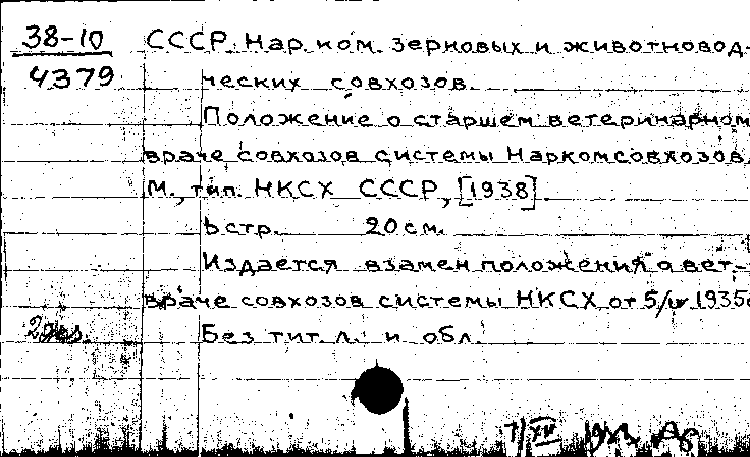 38-10 СССР. Нар. ком. зерновых и животновод-
4379 ческих совхозов.
Положение о старшем ветеринарном
враче совхозов системы Наркомсовхозов.
М., тип. НКСХ СССР, [1938].
6 стр. 20 см.
Издается взамен положения о вет-
враче совхозов системы НКСХ от 5/IV 1935г.
2 экз. Без тит. л. и обл.
7/XII